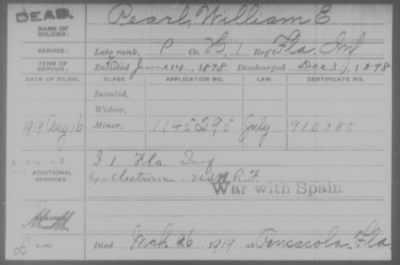 DEAD.
NAME OF SOLDIER: Pearl, William E
SERVICE: Late rank, P Co. H, 1 Reg't Fla. Inf
TERM OF SERVICE: Enlisted June 14, 1898 Discharged Dec 3, 1898
DATE OF FILING. CLASS. APPLICATION NO. LAW. CERTIFICATE NO.
Invalid,
Widow,
1919 Aug 16 Minor, 1145295 910385
ADDITIONAL SERVICES: I 1 Fla Inf
Electrician U.S.N.R.F.
War with Spain
Died Mch 26, 1919, at Pensacola, Fla